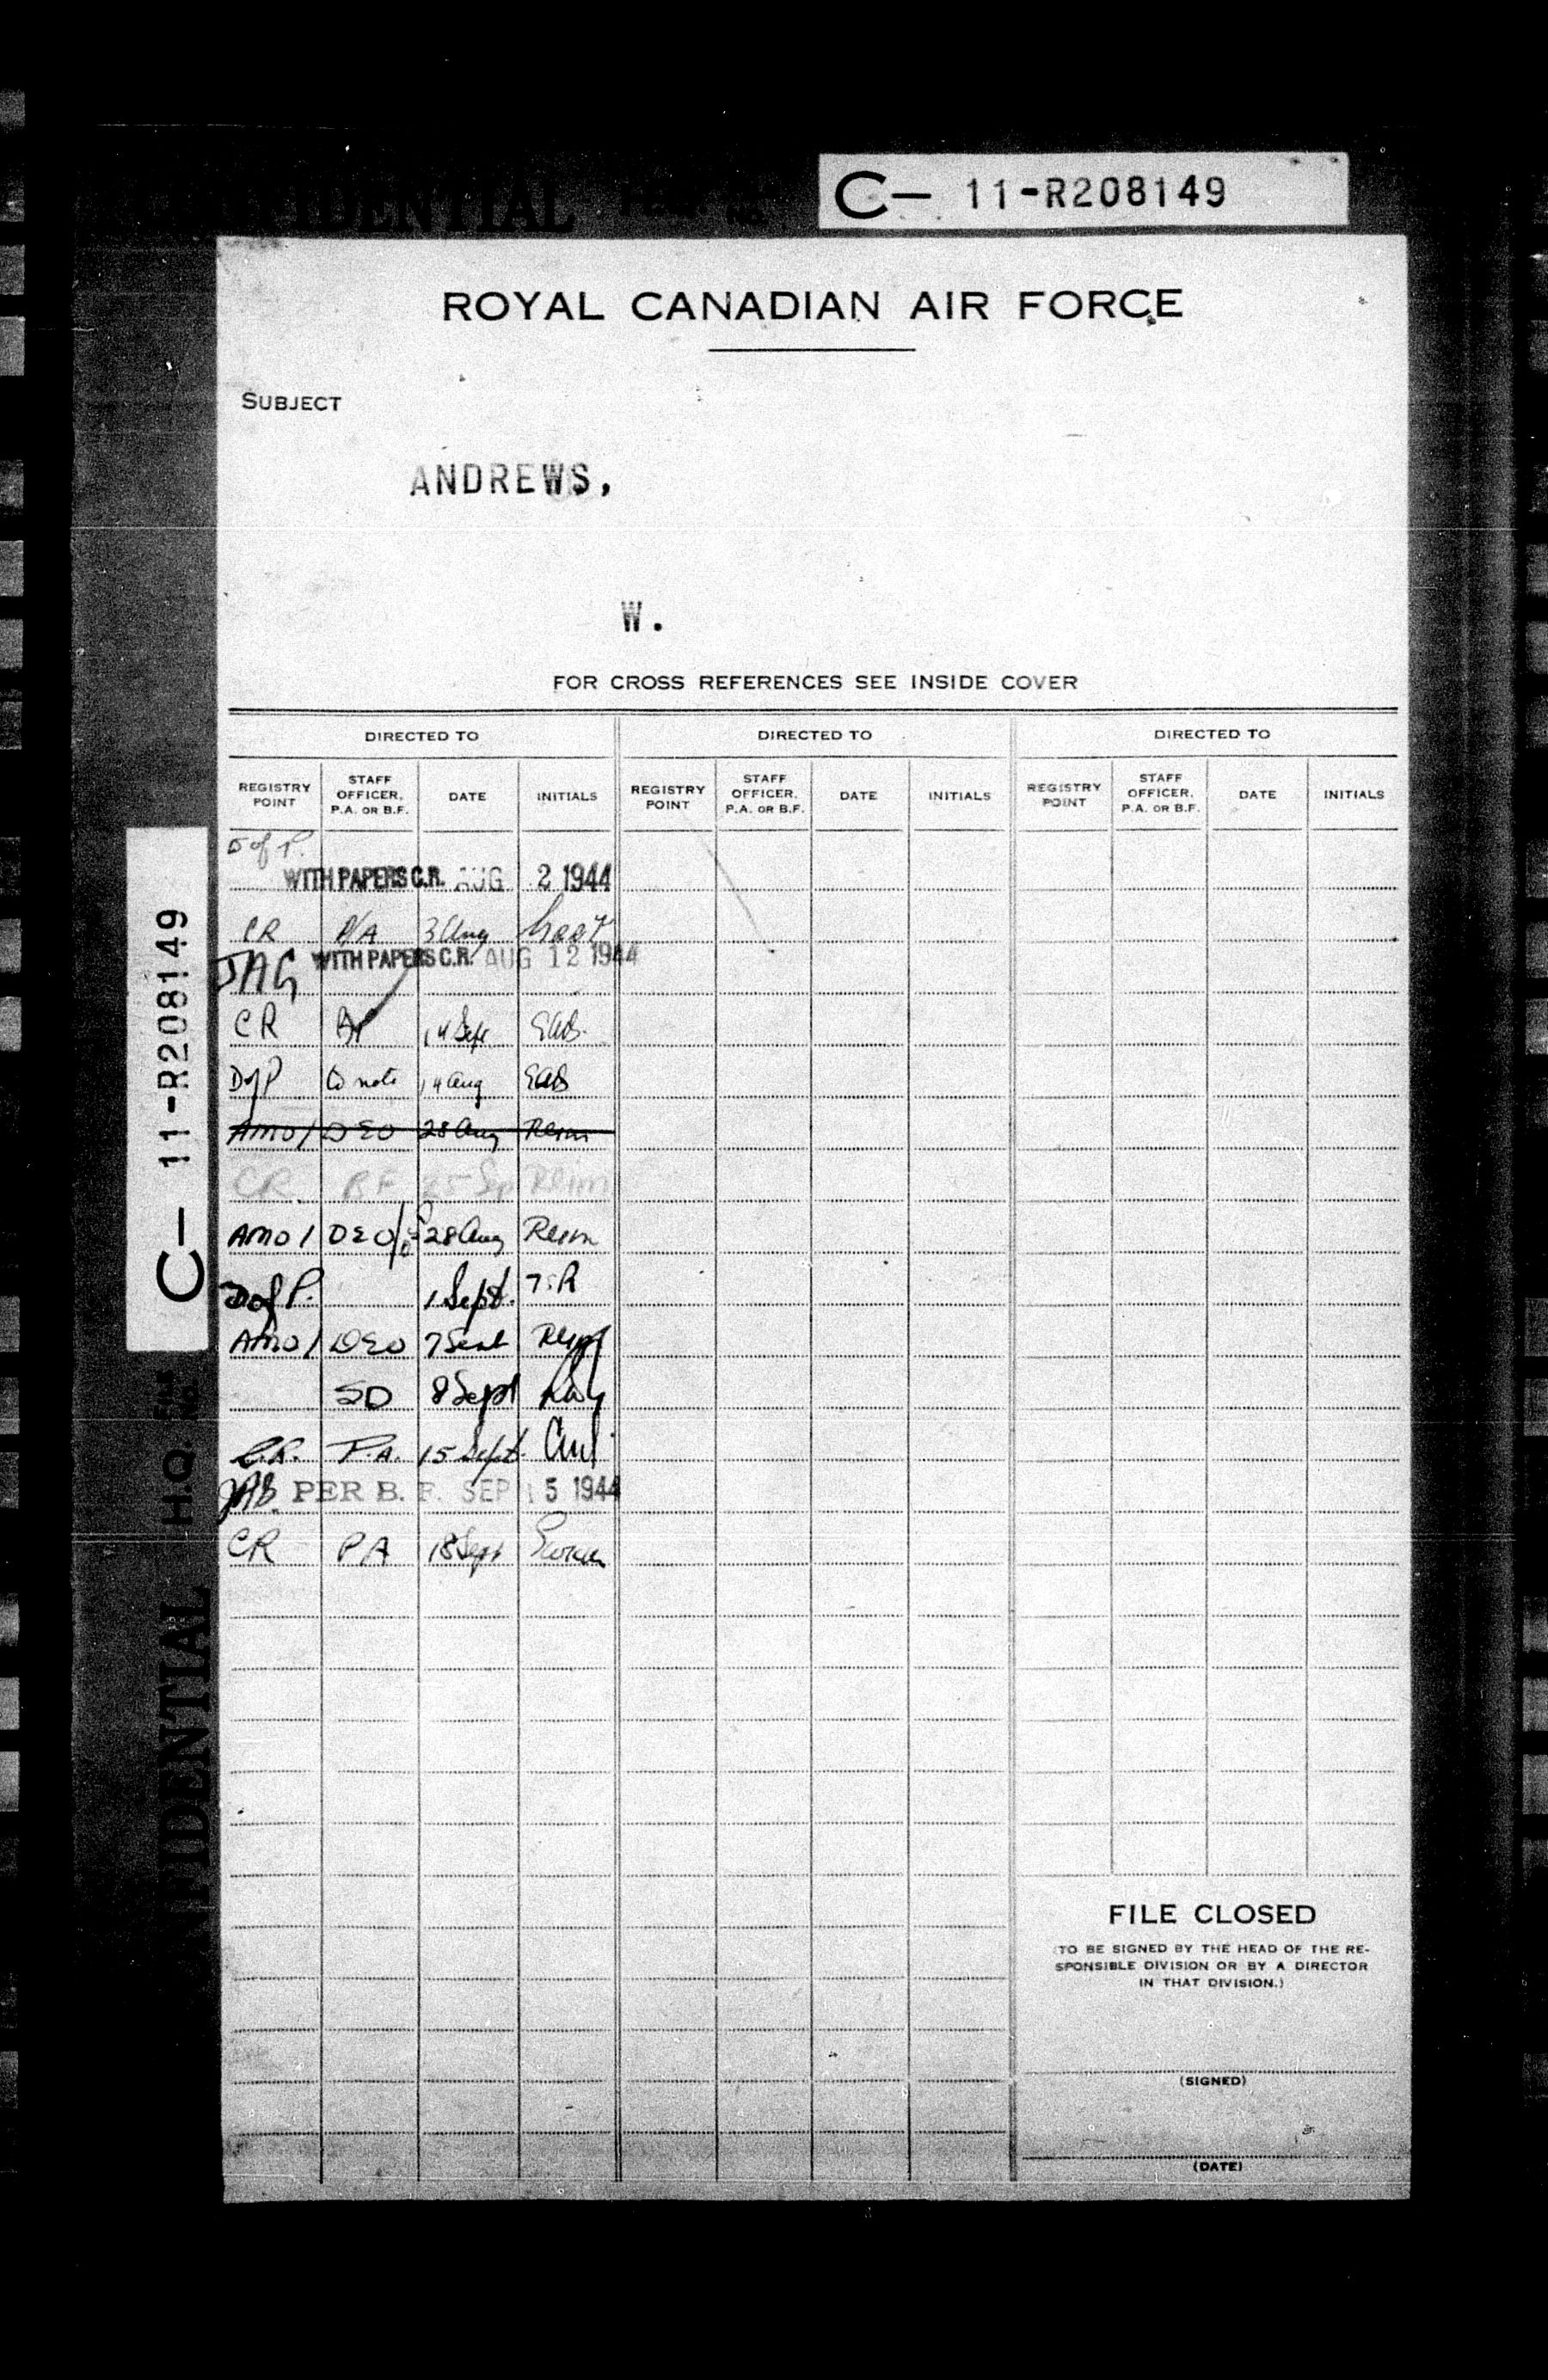 CONFIDENTIAL H.Q. FILE NO.
C- 11-R208149
ROYAL CANADIAN AIR FORCE
SUBJECT
ANDREWS,
W.
FOR CROSS REFERENCES SEE INSIDE COVER
DIRECTED TO DIRECTED TO DIRECTED TO
REGISTRY POINT STAFF OFFICER, P.A. OR B.F. DATE INITIALS REGISTRY POINT STAFF OFFICER, P.A. OR B.F. DATE INITIALS REGISTRY POINT STAFF OFFICER, P.A. OR B.F. DATE INITIALS
D of P.
WITH PAPERS C.R. AUG 2 1944
CR P/A 3 Aug
JAG WITH PAPERS C.R. AUG 12 1944
CR 14 Sept
D of P to note 14 Aug
AMO1 DEO 28 Aug
CR BF 25 Sep
AMO1 DEO 28 Aug
D of P. 1 Sept. T.R
AMO1 DEO 7 Sept
SD 8 Sept
C.R. P.A. 15 Sept.
PER B.F. SEP 15 1944
CR PA 18 Sept
FILE CLOSED
(TO BE SIGNED BY THE HEAD OF THE RE-
SPONSIBLE DIVISION OR BY A DIRECTOR
IN THAT DIVISION.)
(SIGNED)
(DATE)
CONFIDENTIAL H.Q. FILE NO. C- 11-R208149